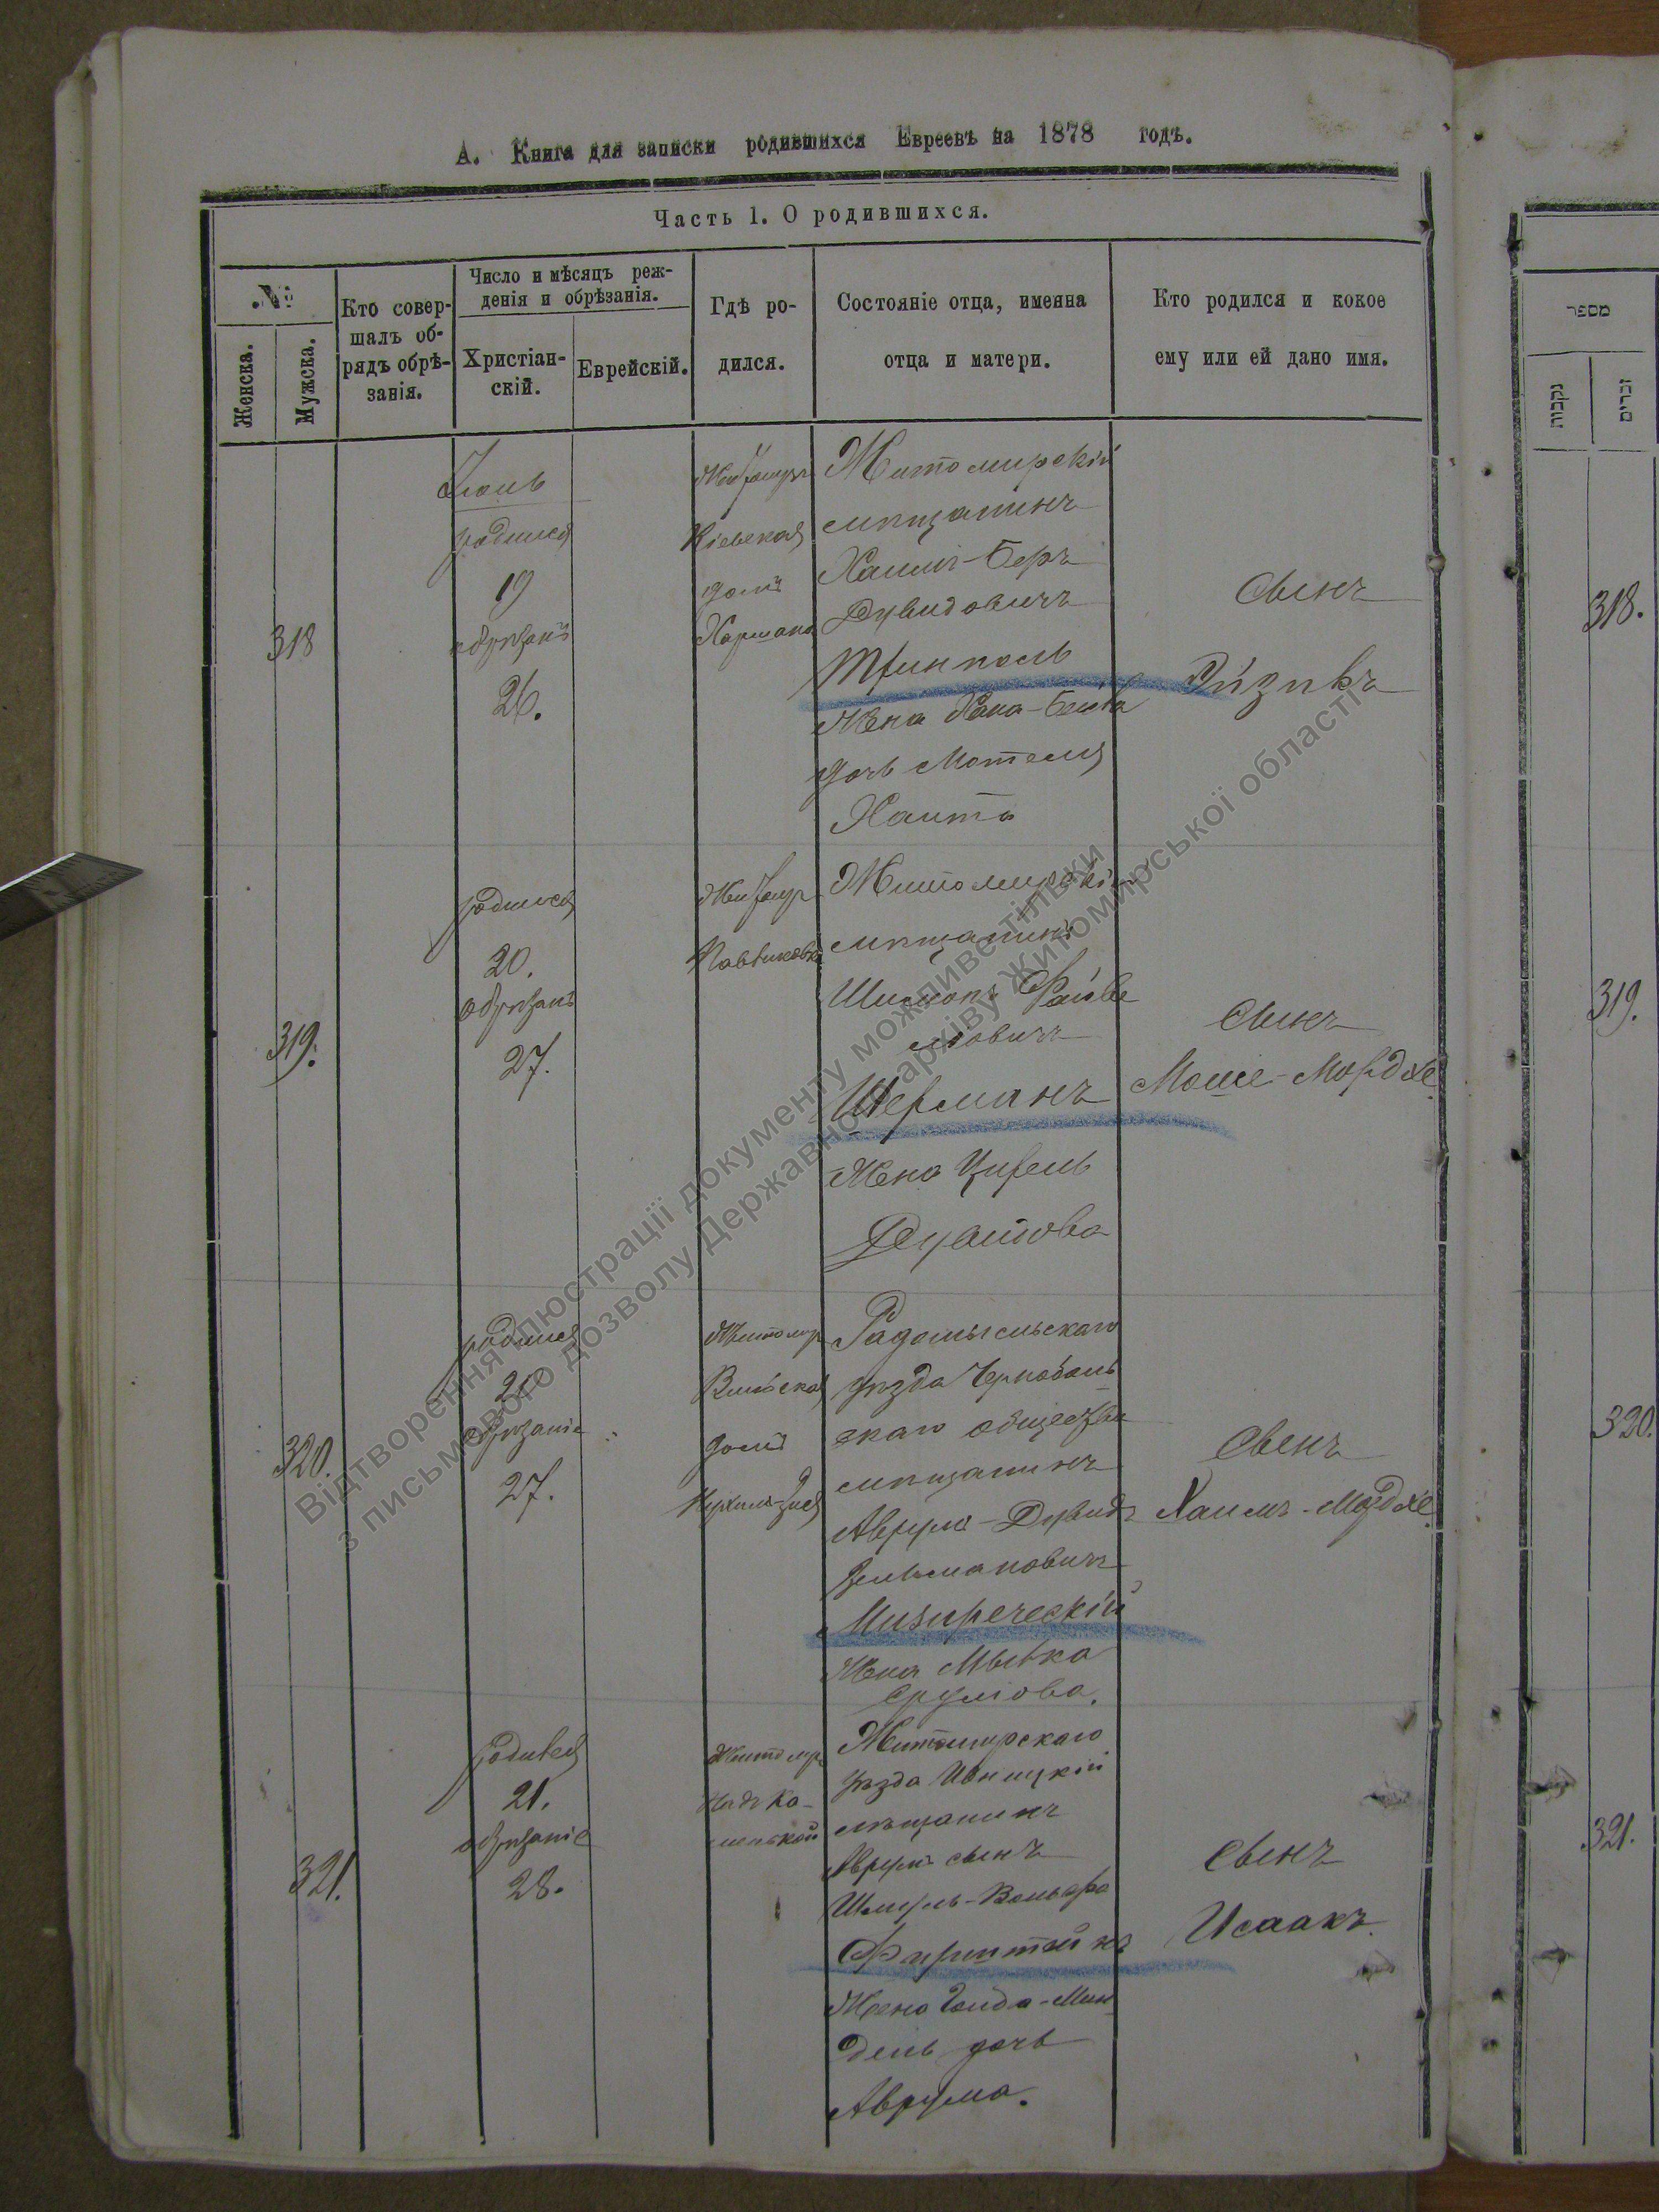 А. Книга для записки родившихся Евреевъ на 1878 годъ.
Часть 1. О родившихся.
№
Женска.
Мужска.
Кто совер-
шалъ об-
рядъ обрѣ-
занія.
Число и мѣсяцъ реж-
денія и обрѣзанія.
Христіан-
скій.
Еврейскій.
Гдѣ ро-
дился.
Состояніе отца, имена
отца и матери.
Кто родился и кокое
ему или ей дано имя.
מספר
נקבות
זכרים
318
родился
19
26.
Кіевская
домъ
Житомирскій
мѣщанинъ
Хаимъ-Беръ
Дувидовичъ
жена Хана-Бейла
дочь Мотеля
Сынъ
318.
319.
родился
20.
обрѣзанъ
27.
Житомирскій
мѣщанинъ
Шимонъ Файве
леовичъ
Шерманъ
Жена
Сынъ
Моше-Мордхе
319.
320.
родился
21
обрѣзаніе
27.
Житомир
домъ
Радомысльскаго
уѣзда Чернобыль
скаго обществ
мѣщанинъ
Аврумъ-Дувидъ
Зельмановичъ
Мизиреческій
Жена
Срулова.
Сынъ
Хаимъ-Мордхе
320.
321.
родився
21.
обрѣзаніе
28.
Житомир
Надъ Ка-
менькой
Житомирскаго
уѣзда Ивницкій
мѣщанинъ
Аврумъ сынъ
Шмуль-Вольфа
Жена Голда-Мин
дель дочь
Аврума.
Сынъ
Исаакъ.
321.
Відтворення ілюстрації документу можливе тільки
з письмового дозволу Державного архіву Житомирської області